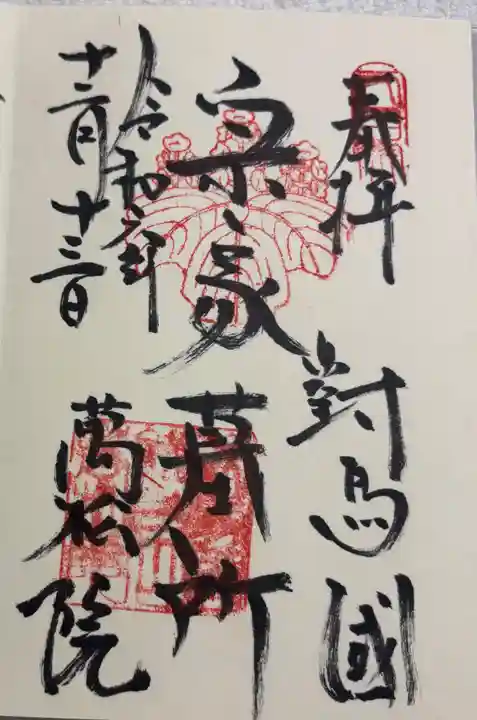 奉拝
對馬國
宗家
墓所
令和六年
十二月十三日
萬松院